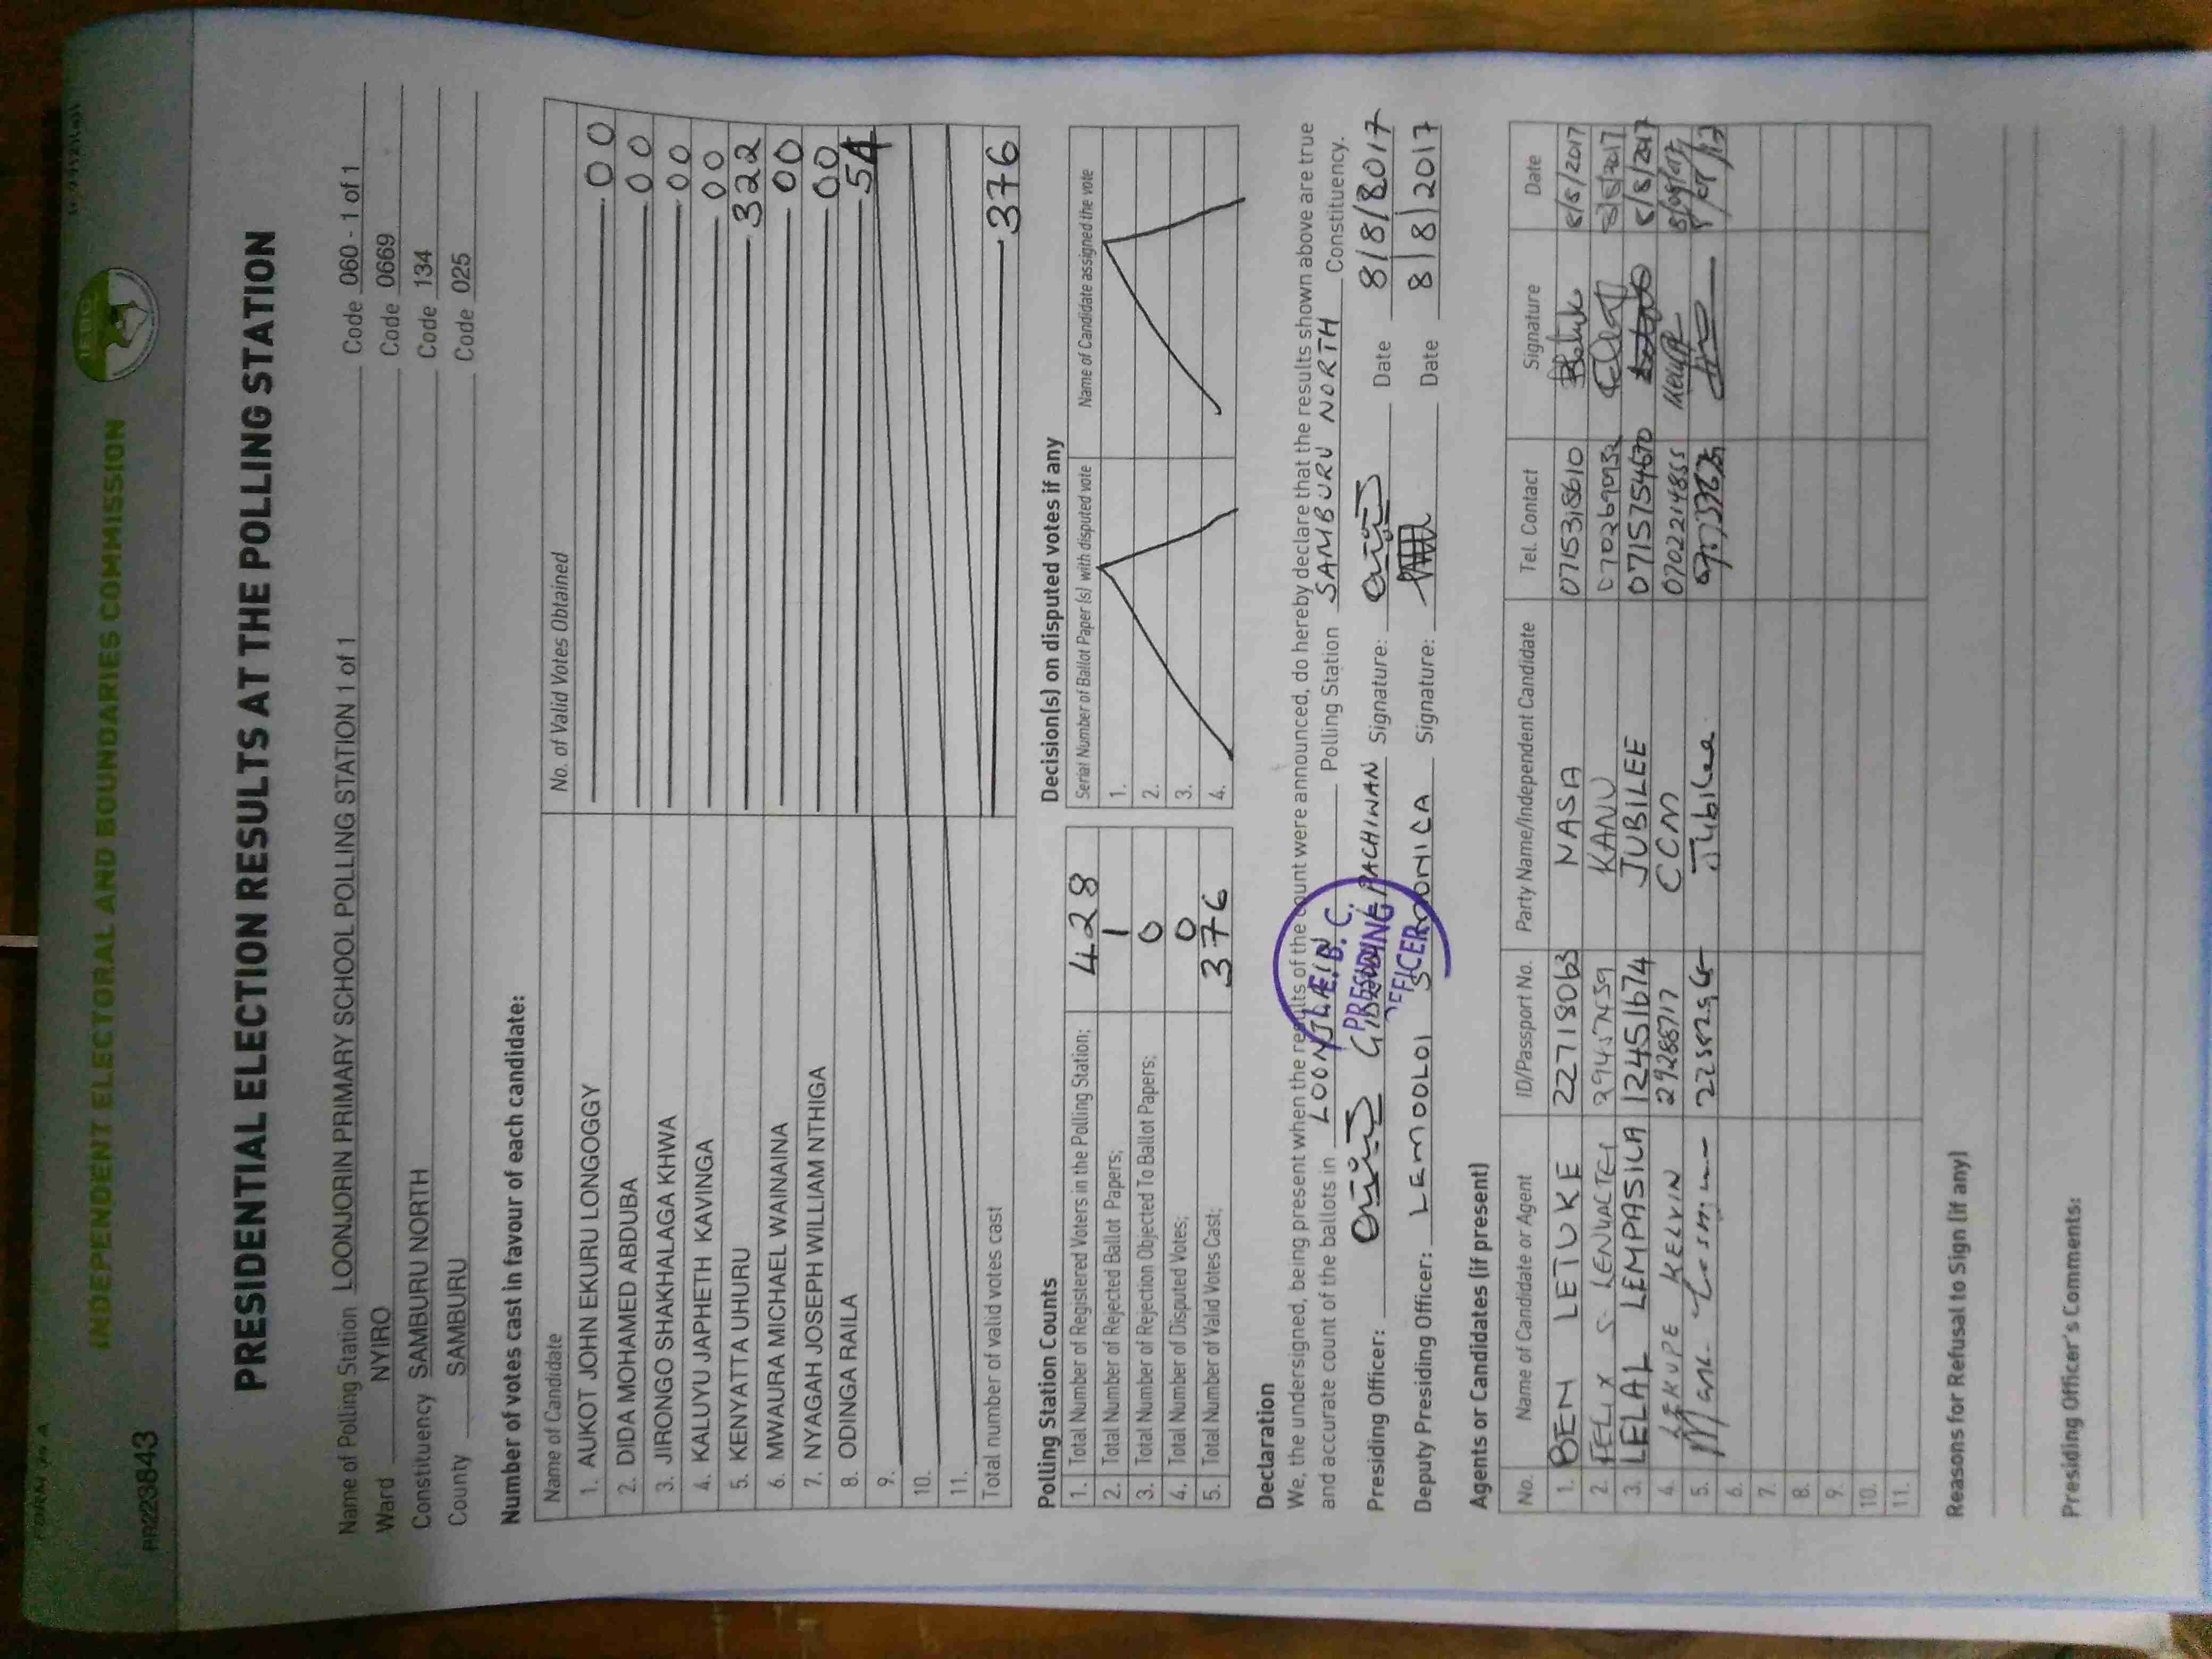 FORM 34 A
INDEPENDENT ELECTORAL AND BOUNDARIES COMMISSION
IEBC
RR223843
PRESIDENTIAL ELECTION RESULTS AT THE POLLING STATION
Name of Polling Station LOONJORIN PRIMARY SCHOOL POLLING STATION 1 of 1 Code 060 - 1 of 1
Ward NYIRO Code 0669
Constituency SAMBURU NORTH Code 134
County SAMBURU Code 025
Number of votes cast in favour of each candidate:
Name of Candidate No. of Valid Votes Obtained
1. AUKOT JOHN EKURU LONGOGGY 00
2. DIDA MOHAMED ABDUBA 00
3. JIRONGO SHAKHALAGA KHWA 00
4. KALUYU JAPHETH KAVINGA 00
5. KENYATTA UHURU 322
6. MWAURA MICHAEL WAINAINA 00
7. NYAGAH JOSEPH WILLIAM NTHIGA 00
8. ODINGA RAILA 54
9.
10.
11.
Total number of valid votes cast 376
Polling Station Counts
1. Total Number of Registered Voters in the Polling Station; 428
2. Total Number of Rejected Ballot Papers; 1
3. Total Number of Rejection Objected To Ballot Papers; 0
4. Total Number of Disputed Votes; 0
5. Total Number of Valid Votes Cast; 376
Decision(s) on disputed votes if any
Serial Number of Ballot Paper (s) with disputed vote Name of Candidate assigned the vote
1.
2.
3.
4.
Declaration
We, the undersigned, being present when the results of the count were announced, do hereby declare that the results shown above are true
and accurate count of the ballots in Polling Station SAMBURU NORTH Constituency.
Presiding Officer: Signature: Date 8/8/8017
Deputy Presiding Officer: LEMOOLOI Signature: Date 8/8/2017
I.E.B.C.
PRESIDING
OFFICER
Agents or Candidates (if present)
No. Name of Candidate or Agent ID/Passport No. Party Name/Independent Candidate Tel. Contact Signature Date
1. BEN LETUKE 22718063 NASA 0715318610 8/8/2017
2. FELIX S 29457459 KANU 0702690952 8/8/2017
3. LELAL LEMPASILA 12451674 JUBILEE 0715754670 8/8/2017
4. LEKUPE KELVIN 29288717 CCM 0702214855 8/08/017
5. Mark Jubilee
6.
7.
8.
9.
10.
11.
Reasons for Refusal to Sign (if any)
Presiding Officer's Comments: